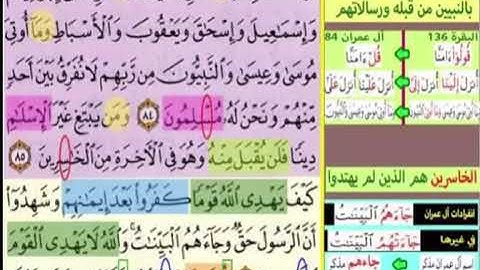 وَإِسْمَٰعِيلَ وَإِسْحَٰقَ وَيَعْقُوبَ وَٱلْأَسْبَاطِ وَمَآ أُوتِيَ
مُوسَىٰ وَعِيسَىٰ وَٱلنَّبِيُّونَ مِن رَّبِّهِمْ لَا نُفَرِّقُ بَيْنَ أَحَدٍ
مِّنْهُمْ وَنَحْنُ لَهُۥ مُسْلِمُونَ ٨٤ وَمَن يَبْتَغِ غَيْرَ ٱلْإِسْلَٰمِ
دِينًا فَلَن يُقْبَلَ مِنْهُ وَهُوَ فِي ٱلْأَخِرَةِ مِنَ ٱلْخَٰسِرِينَ ٨٥
كَيْفَ يَهْدِي ٱللَّهُ قَوْمًا كَفَرُوا۟ بَعْدَ إِيمَٰنِهِمْ وَشَهِدُوٓا۟
أَنَّ ٱلرَّسُولَ حَقٌّ وَجَآءَهُمُ ٱلْبَيِّنَٰتُ وَٱللَّهُ لَا يَهْدِي ٱلْقَوْمَ
بالنبيين من قبله ورسالاتهم
البقرة 136
آل عمران 84
قُولُوٓا۟ ءَامَنَّا
قُلْ ءَامَنَّا
الخاسرين هم الذين لم يهتدوا
انفرادات آل عمران
جَآءَهُمُ ٱلْبَيِّنَٰتُ
في غيرها
جَآءَتْهُمُ ٱلْبَيِّنَٰتُ
اسم آل عمران مذكر
جاءهم مذكر